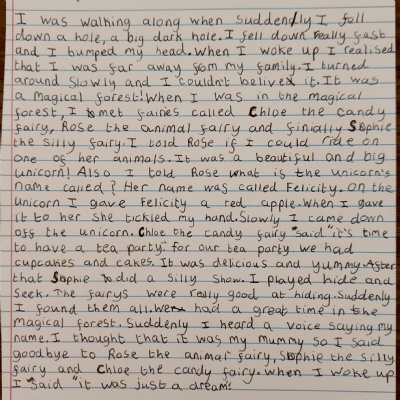 I was walking along when suddenly I fell
down a hole, a big dark hole. I fell down really fast
and I bumped my head. When I woke up I realised
that I was far away from my family. I turned
around slowly and I couldn't belive it. It was
a magical forest! When I was in the magical
forest, I met fairies called Chloe the candy
fairy, Rose the animal fairy and finially Sophie
the silly fairy. I told Rose if I could ride on
one of her animals. It was a beautiful and big
unicorn! Also I told Rose what is the unicorn's
name called? Her name was called Felicity. On the
unicorn I gave Felicity a red apple. When I gave
it to her she tickled my hand. Slowly I came down
off the unicorn. Chloe the candy fairy "said "it's time
to have a tea party. for our tea party we had
cupcakes and cakes. It was delicious and yummy. After
that Sophie did a silly show. I played hide and
seek. The fairys were really good at hiding. Suddenly
I found them all. We had a great time in the
magical forest. Suddenly I heard a voice saying my
name. I thought that it was my mummy so I said
goodbye to Rose the animal fairy, Sophie the silly
fairy and Chloe the candy fairy. When I woke up
I "said "it was just a dream."